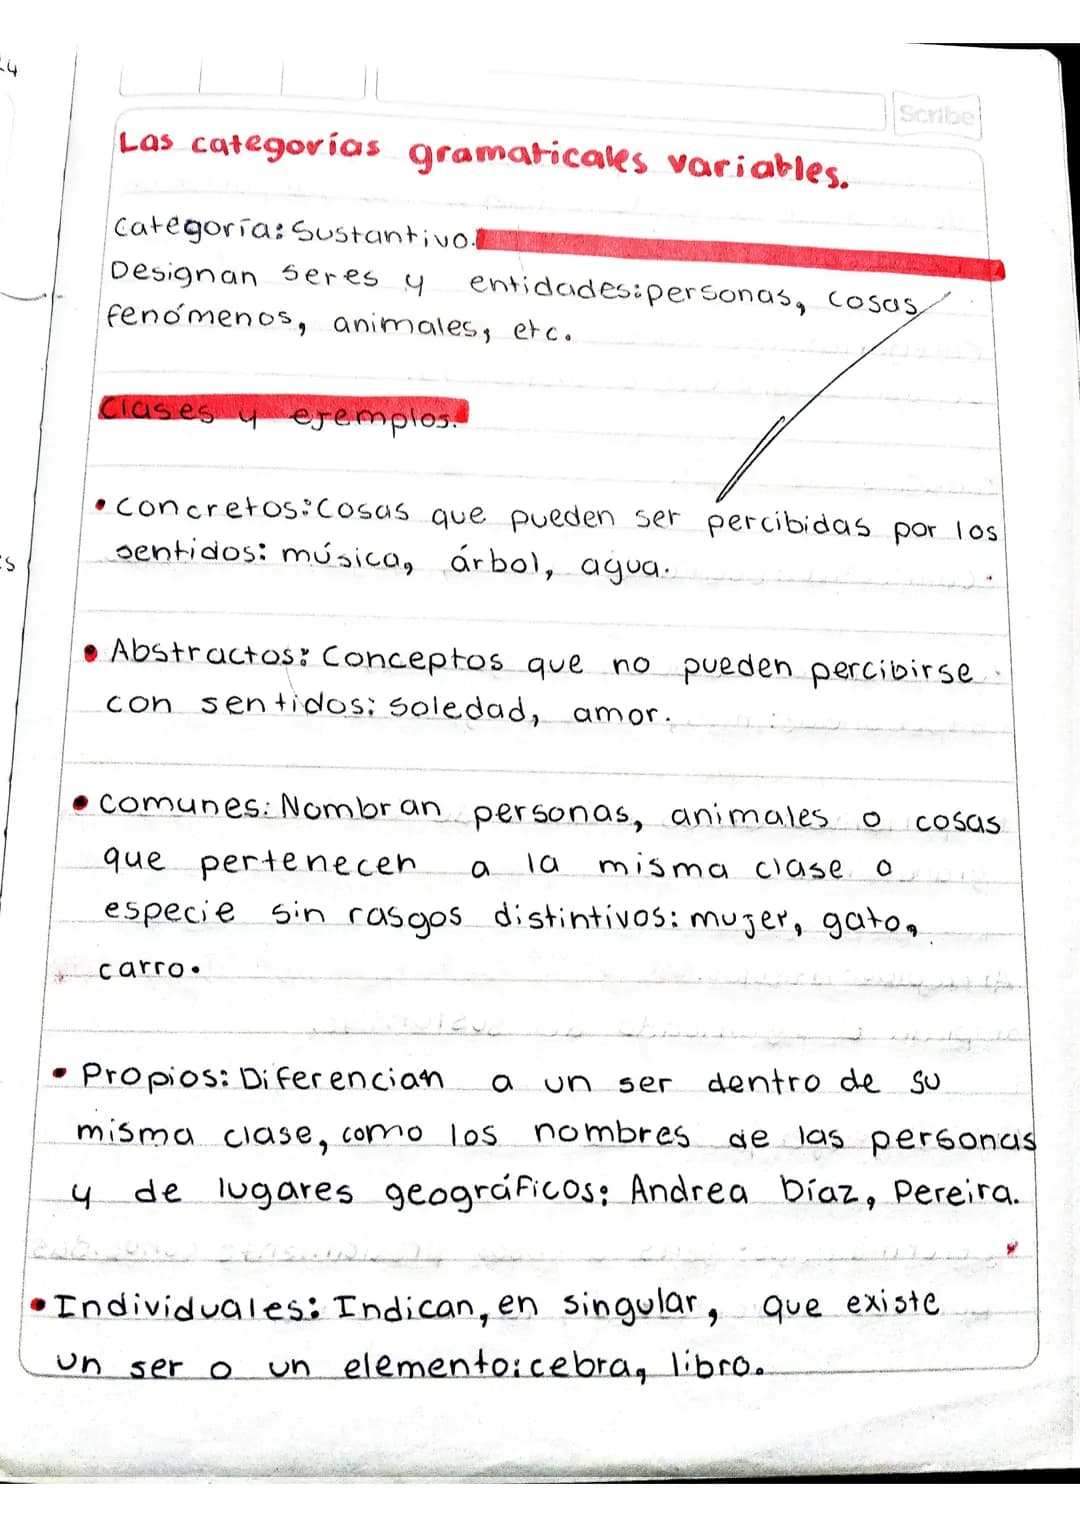 24
Scribe
Las categorías gramaticales variables.
Categoría: Sustantivo.
Designan seres y entidades: personas, cosas
fenómenos, animales, etc.
Clases y ejemplos.
• Concretos: Cosas que pueden ser percibidas por los
sentidos: música, árbol, agua.
• Abstractos: Conceptos que no pueden percibirse
con sentidos: soledad, amor.
• Comunes: Nombran personas, animales o cosas
que pertenecen a la misma clase o
especie sin rasgos distintivos: mujer, gato,
carro.
• Propios: Diferencian a un ser dentro de su
misma clase, como los nombres de las personas
y de lugares geográficos: Andrea Díaz, Pereira.
• Individuales: Indican, en singular, que existe
un ser o un elemento: cebra, libro.